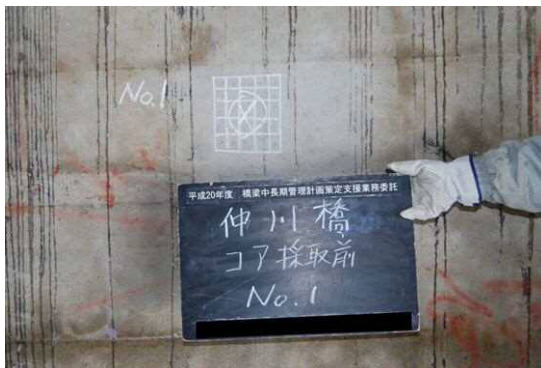 No.1
平成20年度 橋梁中長期管理計画策定支援業務委託
仲川橋
コア採取前
No.1